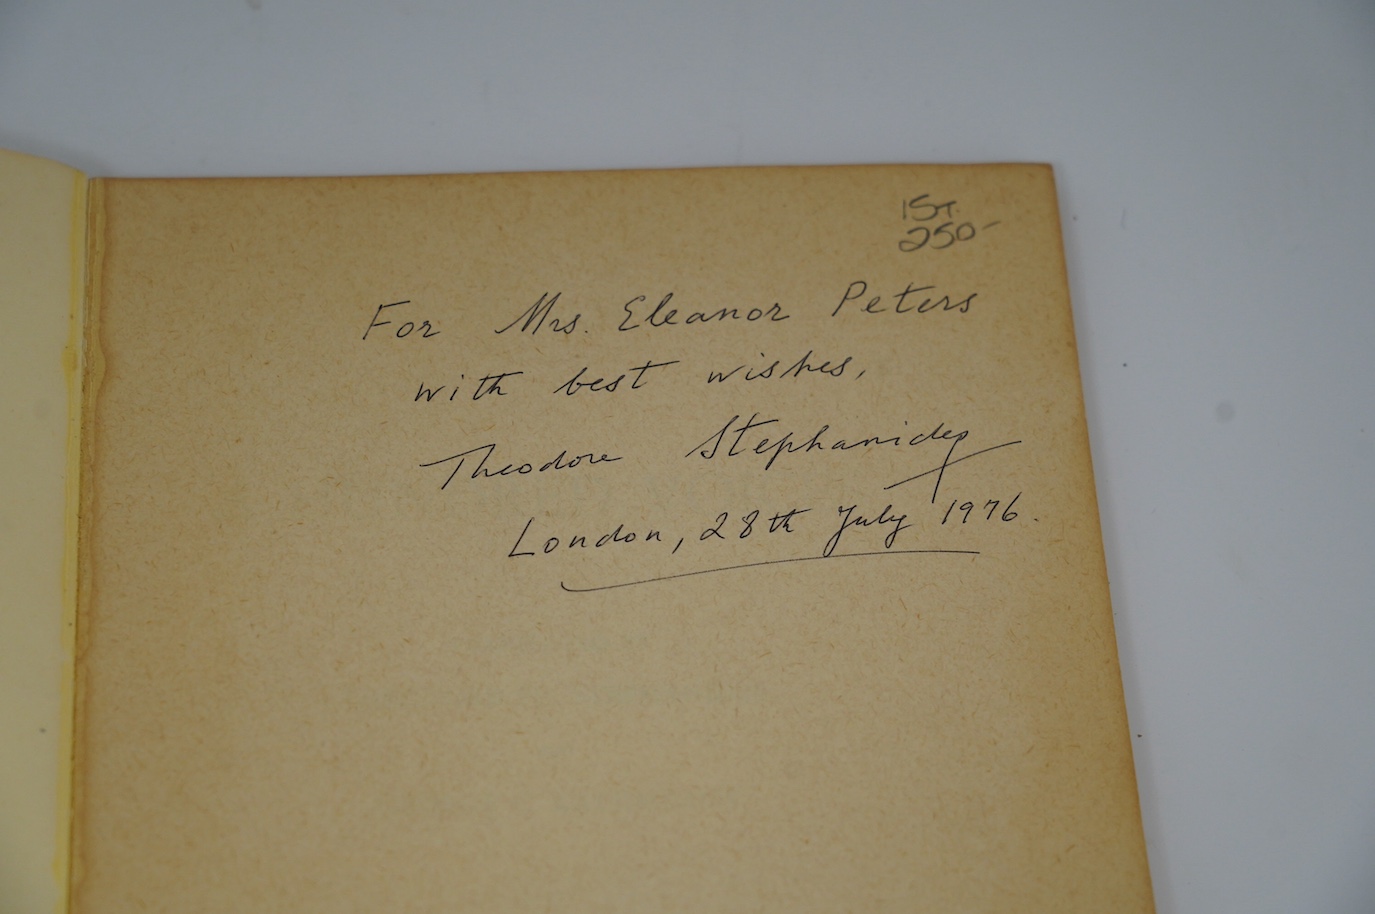 1ST
250-
For Mrs. Eleanor Peters
with best wishes,
Theodore Stephanides
London, 28th July 1976.